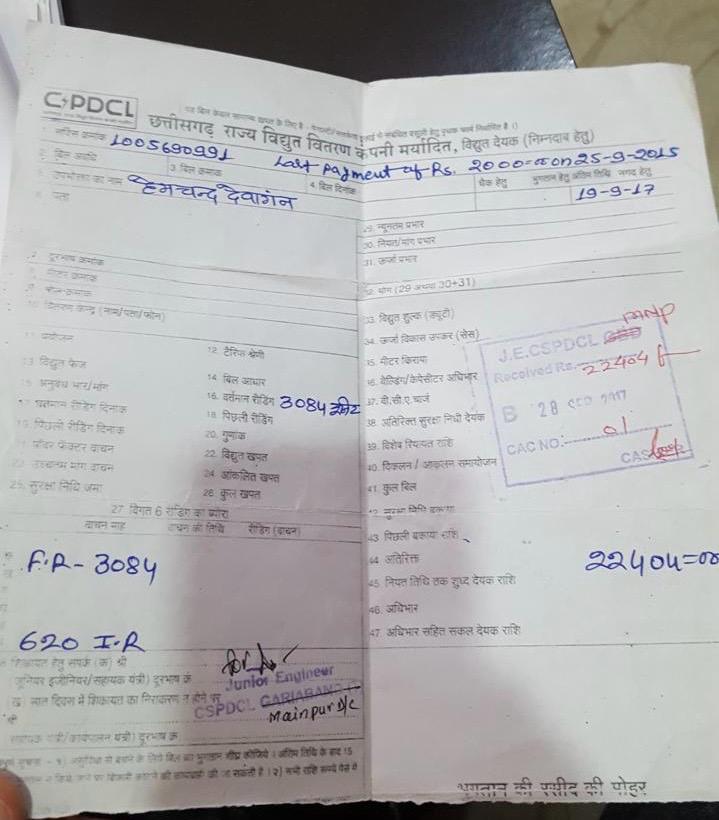 CSPDCL
छत्तीसगढ़ राज्य विद्युत वितरण कंपनी मर्यादित, विद्युत देयक (निम्नदाब हेतु)
1. सर्विस क्रमांक 1005690991 Last Payment of Rs. 2000=00 on 25-9-2015
2. बिल अवधि 3. बिल क्रमांक 4. बिल दिनांक चेक हेतु भुगतान हेतु अंतिम तिथि नगद हेतु
5. उपभोक्ता का नाम हेमचन्द देवांगन 19-9-17
6. पता
29. न्यूनतम प्रभार
30. नियत/मांग प्रभार
31. ऊर्जा प्रभार
7. दूरभाष क्रमांक
8. मीटर क्रमांक
9. पोल-क्रमांक
32. योग (29 अथवा 30+31)
10. वितरण केन्द्र (नाम/पता/फोन)
33. विद्युत शुल्क (ड्यूटी)
34. ऊर्जा विकास उपकर (सेस)
11. प्रयोजन 12. टैरिफ श्रेणी
35. मीटर किराया
13. विद्युत फेज 14. बिल आधार
36. वेल्डिंग/केपेसीटर अधिभार
15. अनुबंध भार/मांग 16. वर्तमान रीडिंग 3084 यूनिट
37. वी.सी.ए. चार्ज
17. वर्तमान रीडिंग दिनांक 18. पिछली रीडिंग
38. अतिरिक्त सुरक्षा निधी देयक
19. पिछली रीडिंग दिनांक 20. गुणांक
39. विशेष रियायत राशि
21. पॉवर फेक्टर वाचन 22. विद्युत खपत
40. विकलन / आकलन समायोजन
23. उच्चतम मांग वाचन 24. आंकलित खपत
41. कुल बिल
25. सुरक्षा निधि जमा 26. कुल खपत
42. सुरक्षा निधि बकाया
MNP
J.E.CSPDCL
Received Rs. 22404/-
B 28 SEP 2017
CAC NO: 01
CAS
27. विगत 6 रीडिंग का ब्योरा
वाचन माह वाचन की तिथि रीडिंग (वाचन)
43. पिछली बकाया राशि
F.R - 3084
44. अतिरिक्त
22404=00
45. नियत तिथि तक शुध्द देयक राशि
46. अधिभार
620 I.R
47. अधिभार सहित सकल देयक राशि
शिकायत हेतु संपर्क (क) श्री
जूनियर इंजीनियर/सहायक यंत्री) दूरभाष क्र
Junior Engineer
(ख) सात दिवस में शिकायत का निराकरण न होने पर
CSPDCL GARIABAND
श्री
Mainpur D/C
सहायक यंत्री/कार्यपालन यंत्री) दूरभाष क्र
भुगतान की रसीद की पोहर